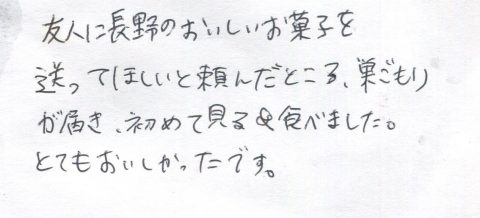 友人に長野のおいしいお菓子を
送ってほしいと頼んだところ、巣ごもり
が届き、初めて見る&食べました。
とてもおいしかったです。